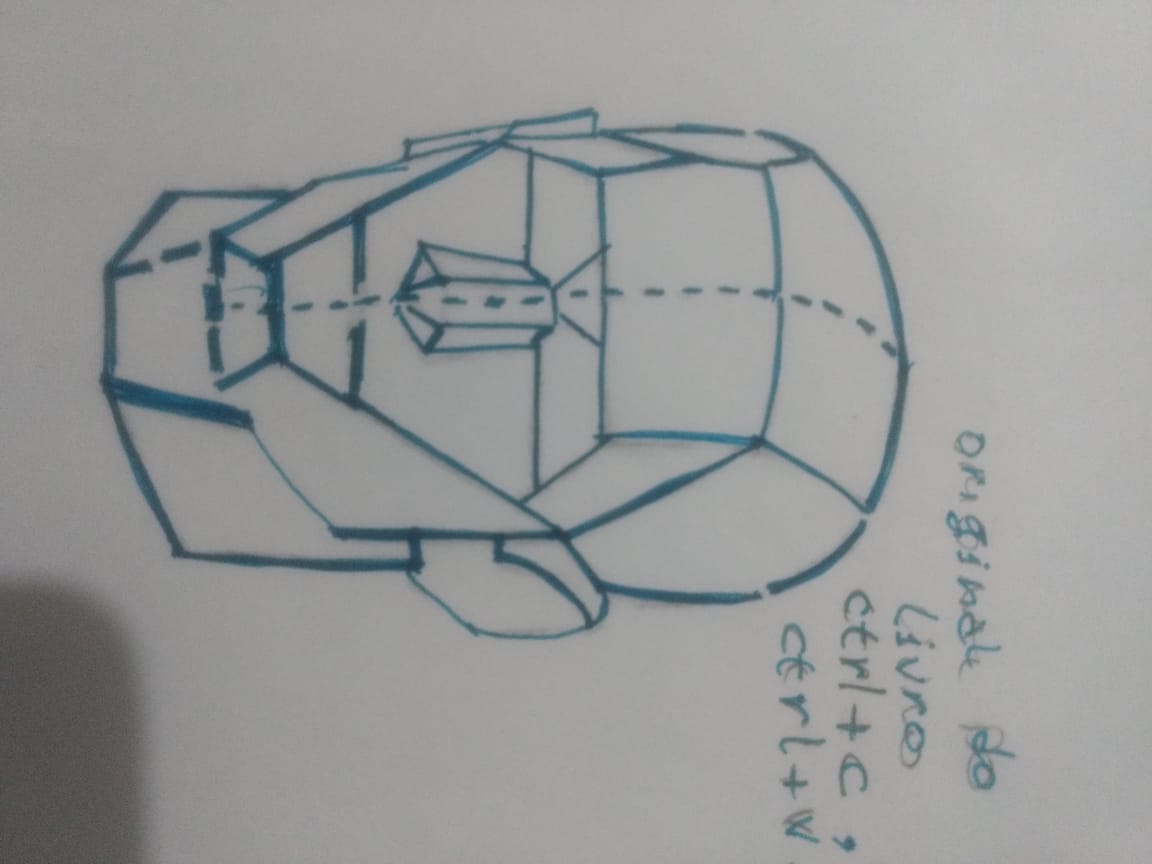 originale do
livro
ctrl+c,
ctrl+v.